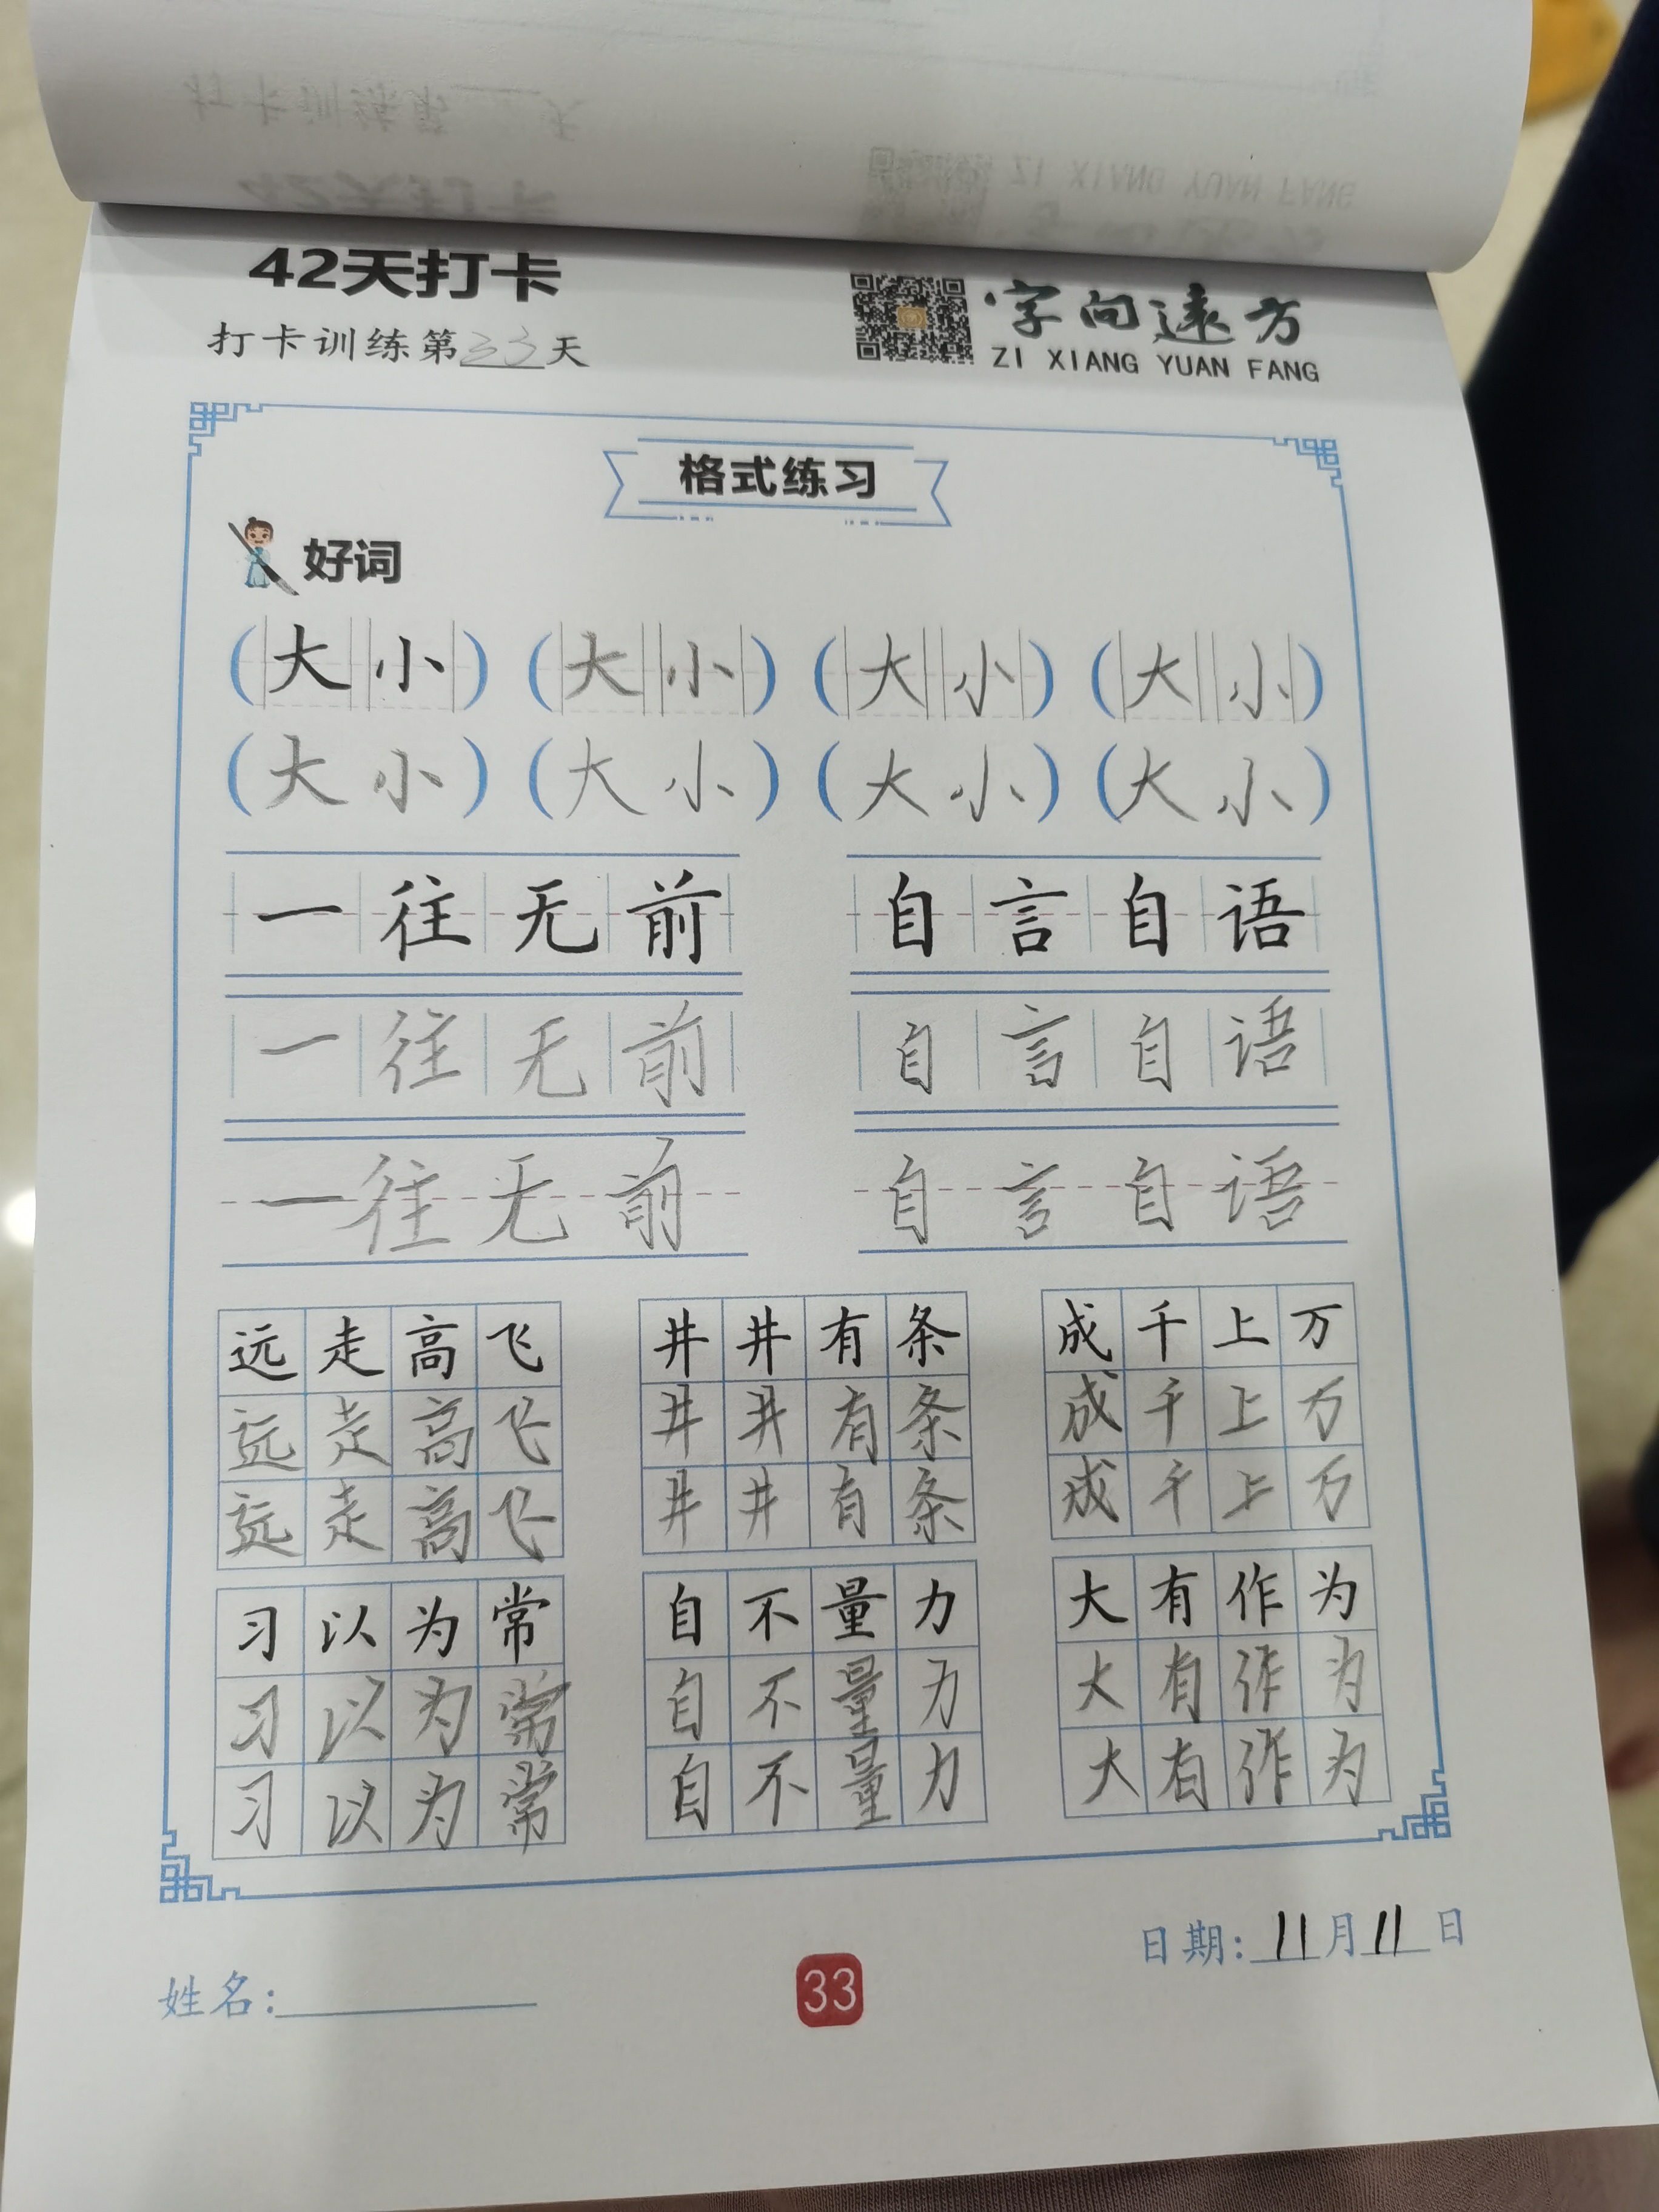 42天打卡
打卡训练第33天
字向远方
ZI XIANG YUAN FANG
格式练习
好词
(大小) (大小) (大小) (大小)
(大小) (大小) (大小) (大小)
一往无前 自言自语
一往无前 自言自语
一往无前 自言自语
远走高飞 井井有条 成千上万
远走高飞 井井有条 成千上万
远走高飞 井井有条 成千上万
习以为常 自不量力 大有作为
习以为常 自不量力 大有作为
习以为常 自不量力 大有作为
日期:11月11日
姓名:
33